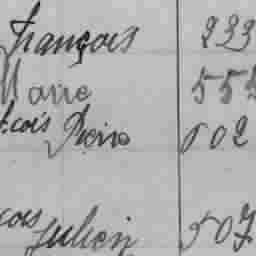 François 233
Marie 553
çois Pierre 602
çois Julien 507